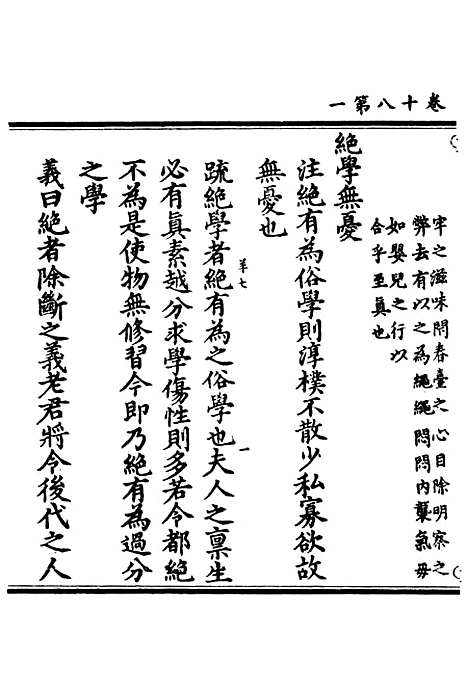 卷十八第一
牢之滋味閉春臺之心目除明察之
弊去有以之為繩繩悶悶內襲氣母
如嬰兒之行以
合乎至真也
絕學無憂
注絕有為俗學則淳樸不散少私寡欲故
無憂也
羊七
一
疏絕學者絕有為之俗學也夫人之稟生
必有真素越分求學傷性則多若令都絕
不為是使物無修習今即乃絕有為過分
之學
義曰絕者除斷之義老君將令後代之人